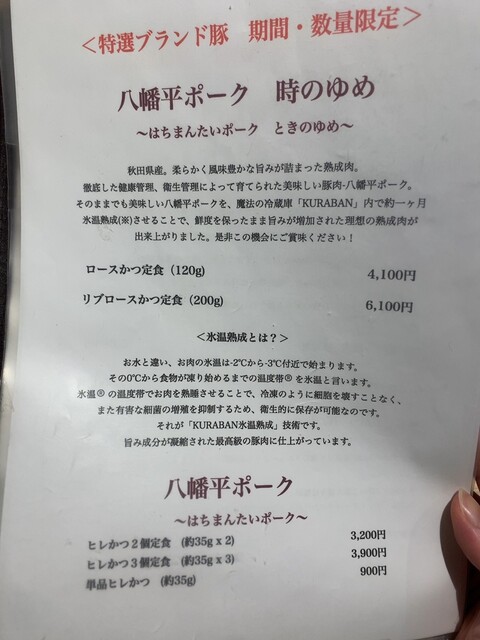 ＜特選ブランド豚　期間・数量限定＞
八幡平ポーク　時のゆめ
〜はちまんたいポーク　ときのゆめ〜
秋田県産。柔らかく風味豊かな旨みが詰まった熟成肉。
徹底した健康管理、衛生管理によって育てられた美味しい豚肉-八幡平ポーク。
そのままでも美味しい八幡平ポークを、魔法の冷蔵庫「KURABAN」内で約一ヶ月
氷温熟成(※)させることで、鮮度を保ったまま旨みが増加された理想の熟成肉が
出来上がりました。是非この機会にご賞味ください！
ロースかつ定食（120g) 4,100円
リブロースかつ定食（200g) 6,100円
＜氷温熟成とは？＞
お水と違い、お肉の氷温は-2℃から-3℃付近で始まります。
その0℃から食物が凍り始めるまでの温度帯®を氷温と言います。
氷温®の温度帯でお肉を熟睡させることで、冷凍のように細胞を壊すことなく、
また有害な細菌の増殖を抑制するため、衛生的に保存が可能なのです。
それが「KURABAN氷温熟成」技術です。
旨み成分が凝縮された最高級の豚肉に仕上がっています。
八幡平ポーク
〜はちまんたいポーク〜
ヒレかつ２個定食　(約35g x 2) 3,200円
ヒレかつ３個定食　(約35g x 3) 3,900円
単品ヒレかつ　(約35g) 900円